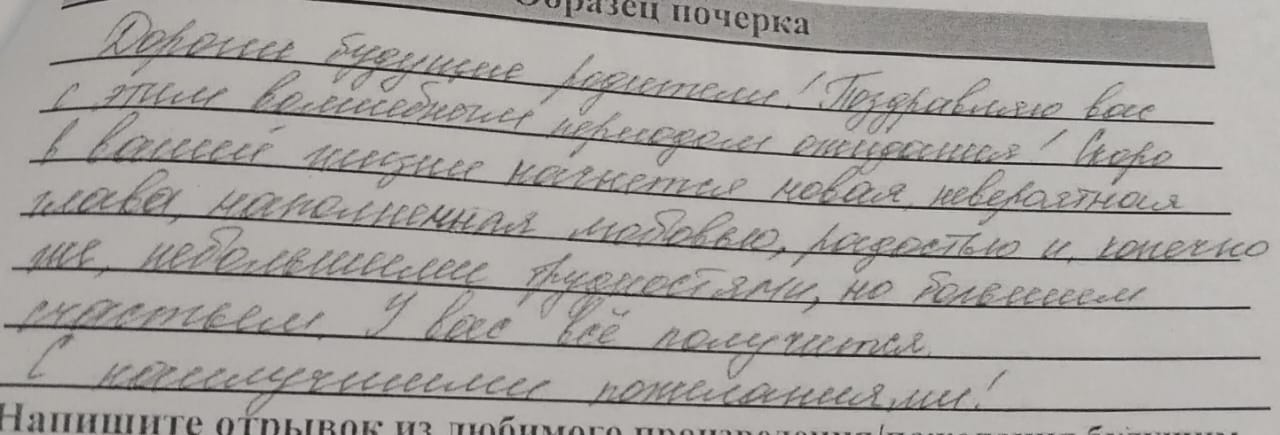 Образец почерка
Дорогие будущие родители! Поздравляю вас
с этим волшебным периодом ожидания! Скоро
в вашей жизни начнется новая, невероятная
глава, наполненная любовью, радостью и, конечно
же, небольшими трудностями, но большим
счастьем. У вас всё получится.
С наилучшими пожеланиями!
Напишите отрывок из любимого произведения/пожелания будущим